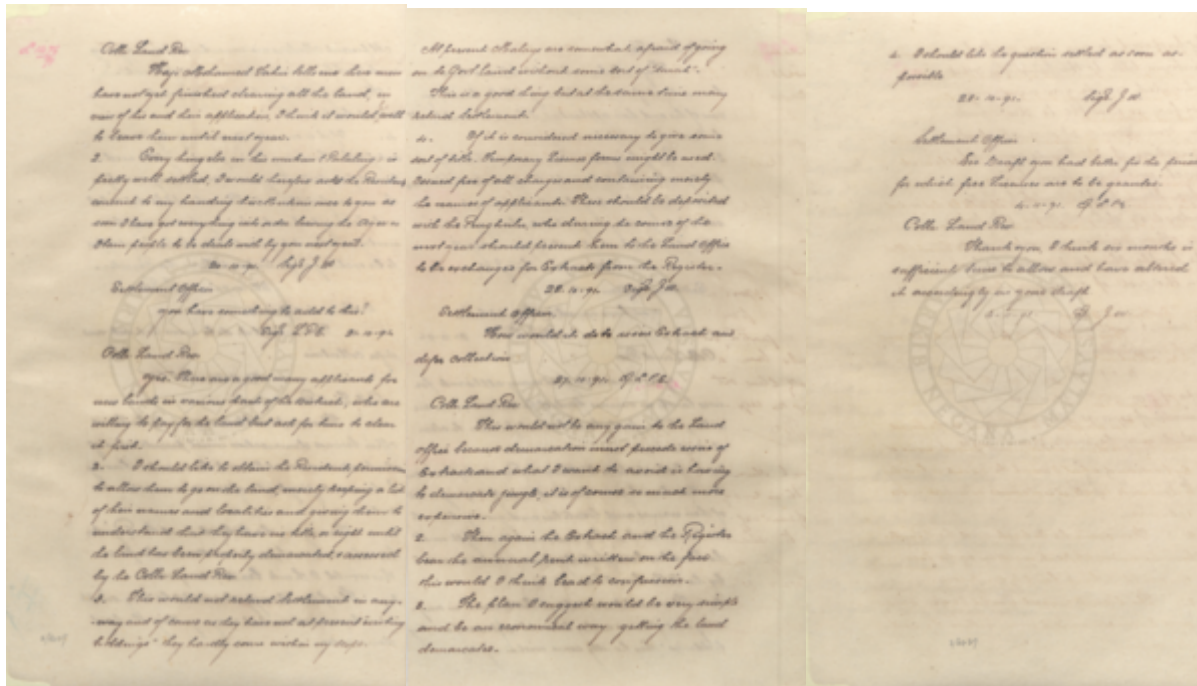 Colle. Land Rev.
Haji Mohamed Tahir tells me these men
have not yet finished clearing all the land, in
view of his and their application, I think it would, well
to leave them until next year.
2. Everything else in this mukim is
pretty well settled, I would therefore ask the Resident's
consent to my handing this Mukim over to you as
soon I have got everything into order leaving the
these people to be dealt with by you next year.
20-10-91 Sigd J W
Settlement Officer
you have something to add to this?
Sigd
Colle Land Rev.
Yes. There are a good many applicants for
new lands in various parts of the district, who are
willing to pay for the land but ask for time to clear
it first.
2. I should like to obtain the Residents permission
to allow them to go on the land, merely keeping a list
of their names and localities and giving them to
understand that they have no title, or right until
the land has been properly demarcated & assessed
by the Colle Land Rev.
3. This would not retard Settlement in any-
way and of course as they have not at present existing
holdings" they hardly come within my
At present Malays are somewhat afraid of going
on to Govt land without some sort of "surat".
This is a good thing but at the same time may
retard Settlement.
4. If it is considered necessary to give some
sort of title. Temporary License forms might be used.
Issued free of all charges and containing merely
the names of applicants. These should be deposited
with the Penghulu, who during the course of the
next year should present them to the Land Office
to be exchanged for Extracts from the Register.
28.10.91. Sigd J W.
Settlement Officer.
How would it do to issue Extracts and
defer collection
29.10.91.
Colle. Land Rev.
This would not be any gain to the Land
office because demarcation must precede issue of
Extracts and what I want to avoid is having
to demarcate jungle, it is of course so much more
expensive.
2. Then again the Extract and the Register
bear the annual rent written on the face
this would I think lead to confusion.
3. The plan I suggest would be very simple
and be an economical way getting the land
demarcated.
4. I should like the question settled as soon as
possible
28-10-91. Sigd J W.
Settlement Officer.
See Draft you had better fix the period
for which free Licenses are to be granted.
4-11-91.
Colle. Land Rev.
Thank you, I think six months is
sufficient time to allow and have altered
it accordingly in your draft
J W